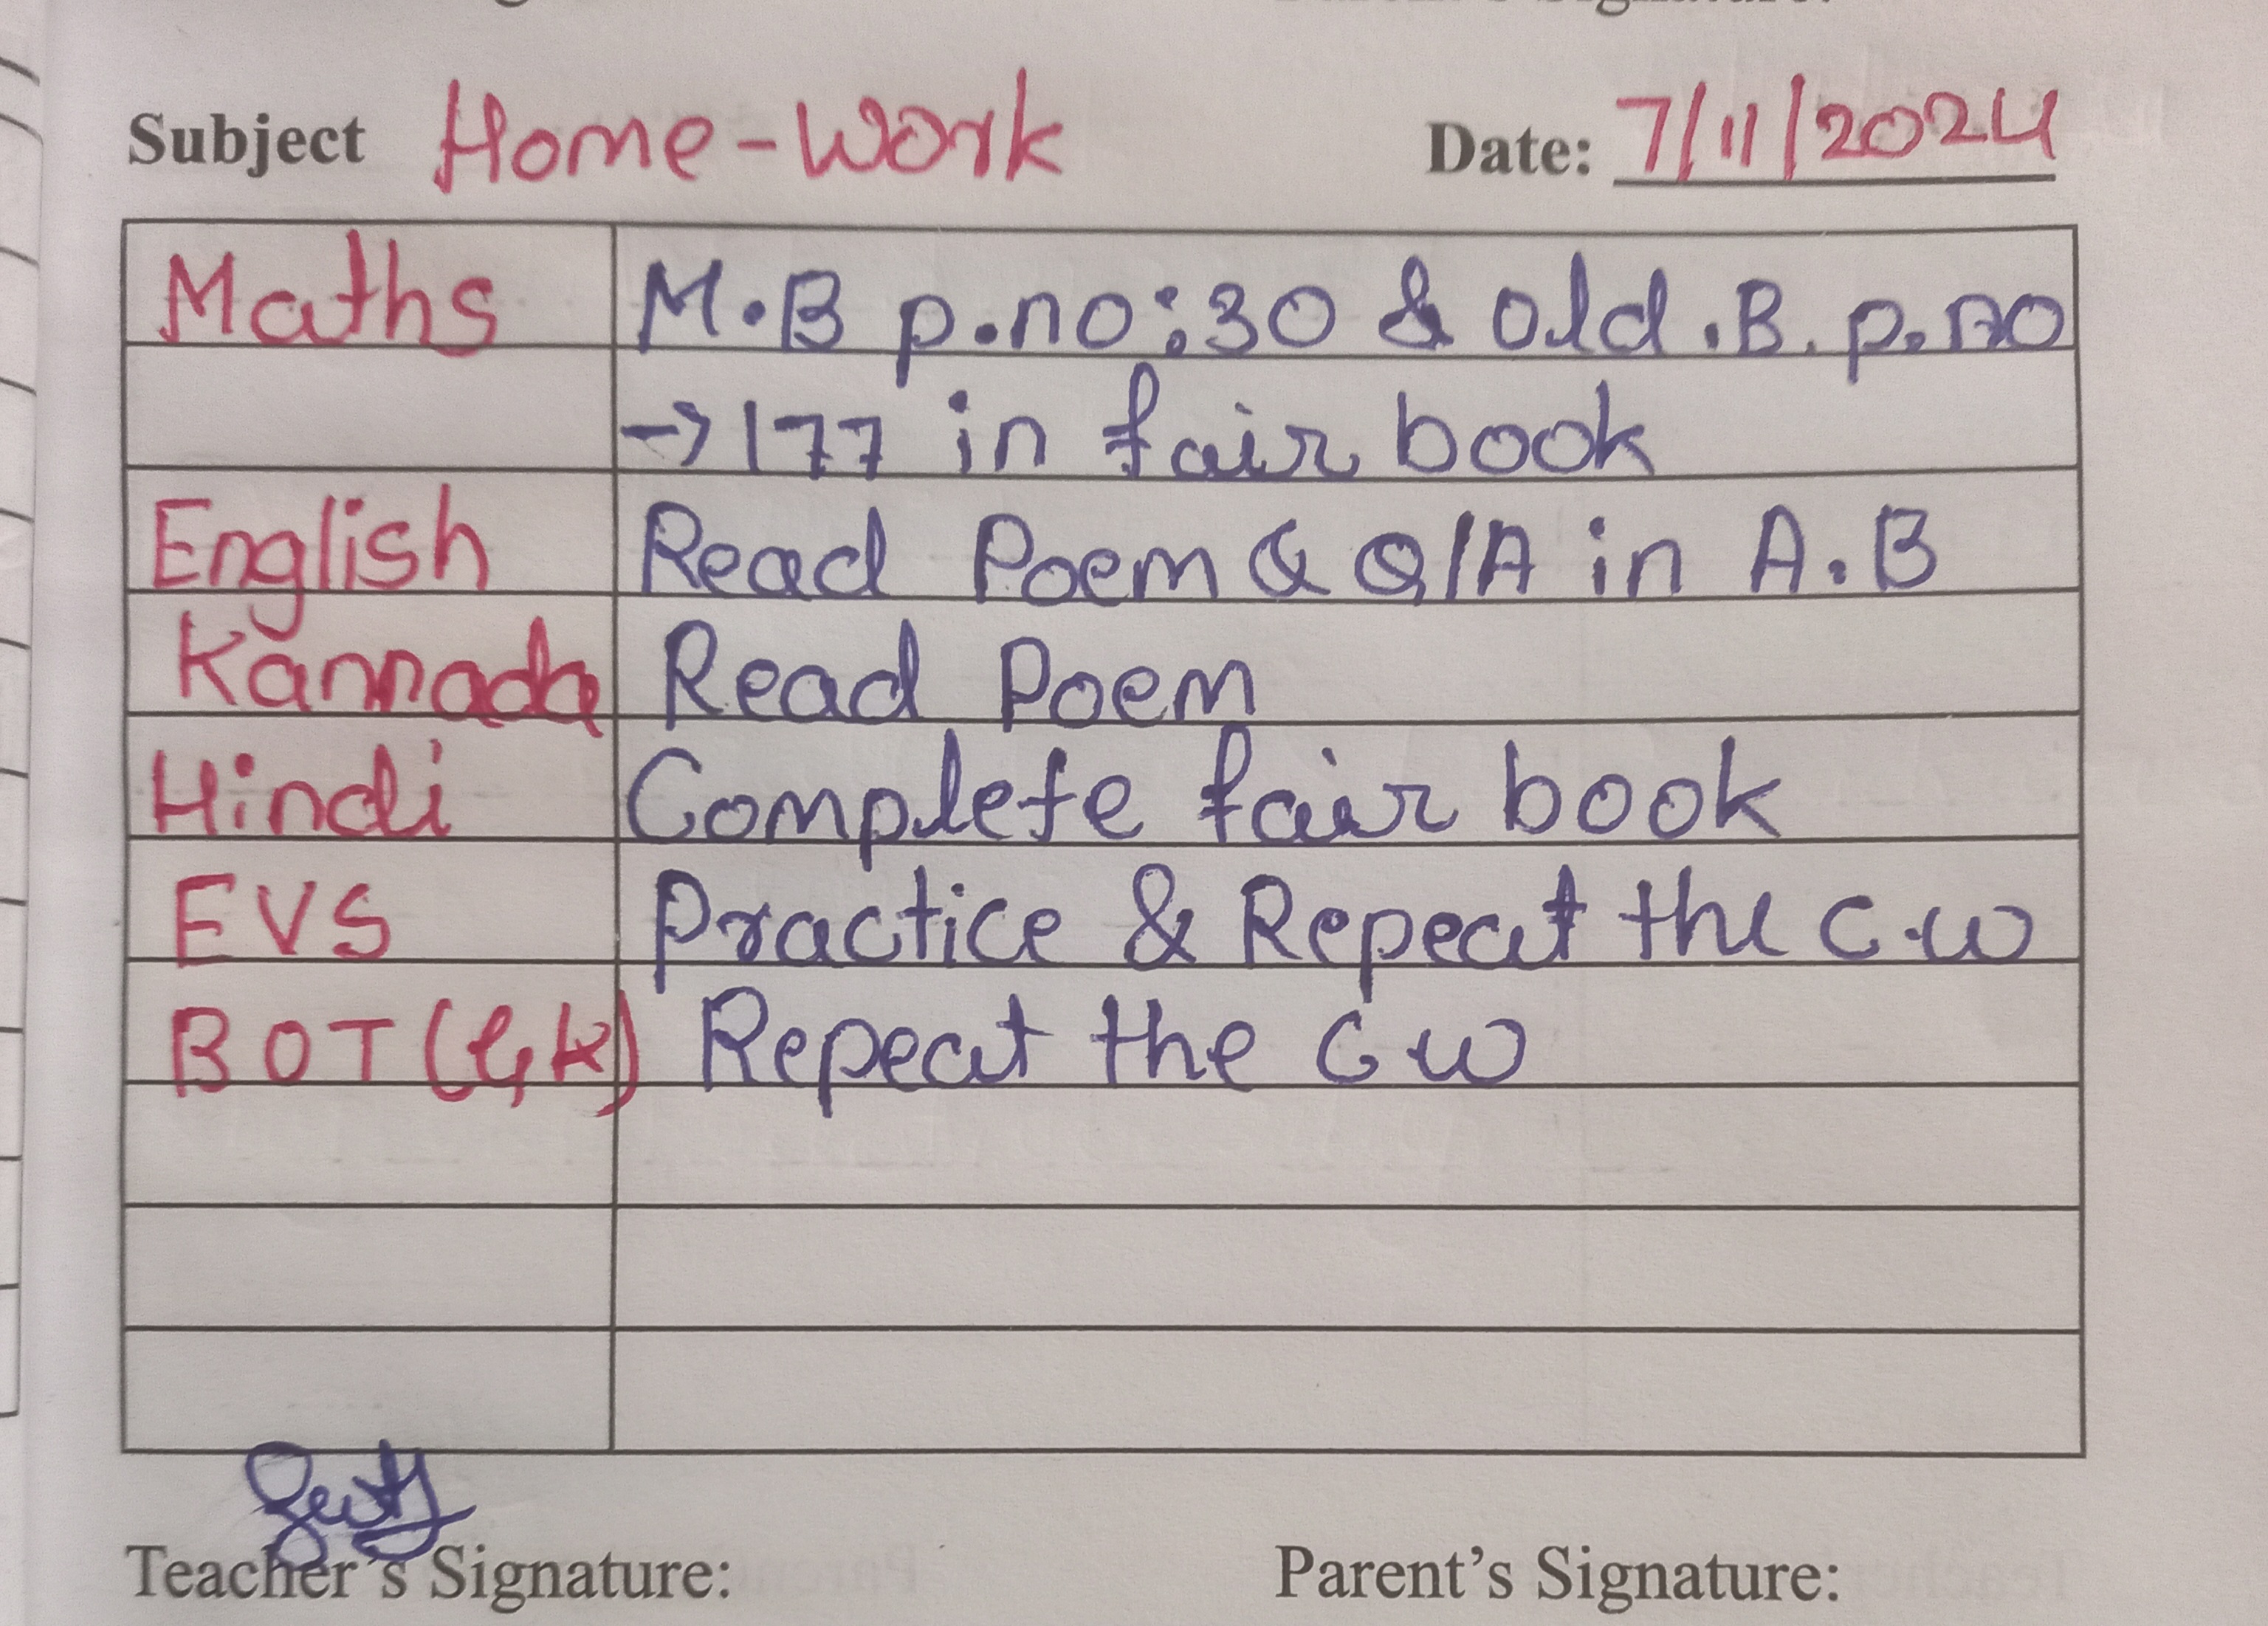 Subject Home-Work Date: 7/11/2024
Maths M.B p.no:30 & old.B.p.no
→177 in fair book
English Read Poem & Q/A in A.B
Kannada Read Poem
Hindi Complete fair book
EVS Practice & Repeat the C.W
BOT(GK) Repeat the C W
Teacher's Signature: Parent's Signature: